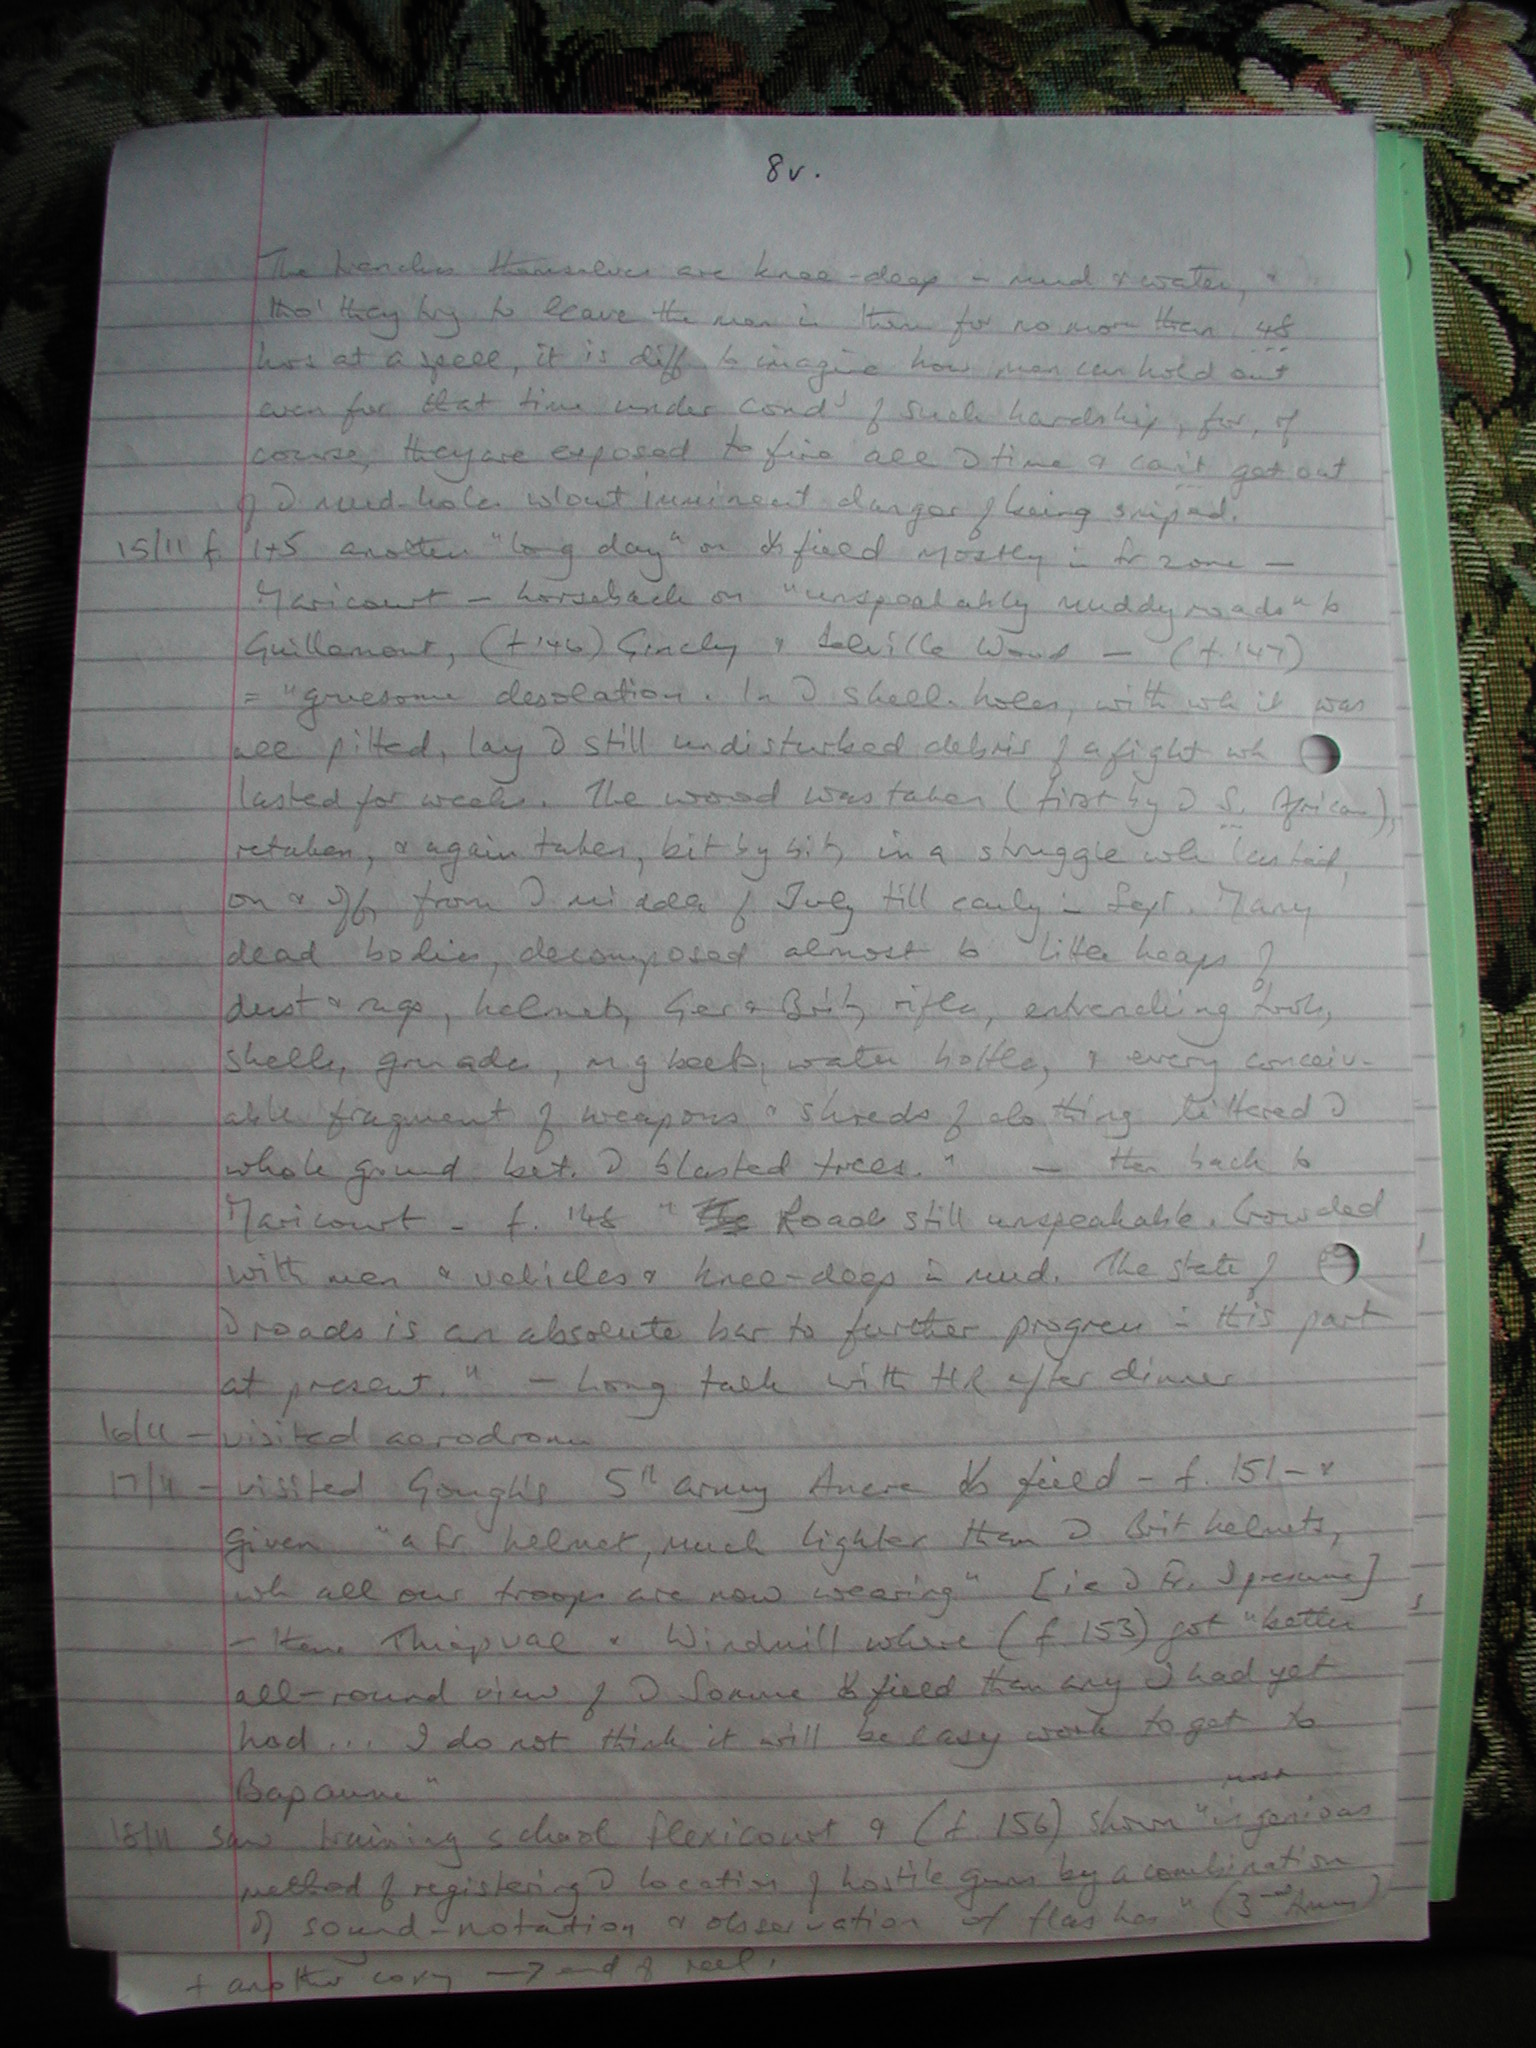 8v.
The trenches themselves are knee-deep in mud & water, &
tho' they try to leave the men in them for no more than 48
hrs at a spell, it is diff to imagine how men can hold out
even for that time under conds of such hardship, for, of
course, they are exposed to fire all the time & can't get out
of the mud-holes w'out imminent danger of being sniped.
15/11 f. 145 another "long day" on b'field mostly in Fr zone —
Maricourt — horseback on "unspeakably muddy roads" to
Guillemont, (f. 146) Ginchy & Delville Wood — (f. 147)
= "gruesome desolation. In the shell-holes, with wh it was
all pitted, lay the still undisturbed debris of a fight wh
lasted for weeks. The wood was taken (first by the S. Africans),
retaken, & again taken, bit by bit, in a struggle wh lasted,
on & off, from the middle of July till early in Sept. Many
dead bodies, decomposed almost to little heaps of
dust & rags, helmets, Ger & Brit, rifles, entrenching tools,
shells, grenades, m g belts, water bottles, & every conceiv-
able fragment of weapons & shreds of clothing littered the
whole ground bet. the blasted trees." — then back to
Maricourt — f. 148 " Roads still unspeakable. Crowded
with men & vehicles & knee-deep in mud. The state of
the roads is an absolute bar to further progress in this part
at present." — Long talk with HR after dinner
16/11 — visited aerodrome
17/11 — visited Gough's 5th Army Ancre b'field — f. 151 — &
given "a Fr helmet, much lighter than the Brit helmets,
wh all our troops are now wearing" [i e the Fr. I presume]
— then Thiepval & Windmill where (f. 153) got "better
all-round view of the Somme b'field than any I had yet
had ... I do not think it will be easy work to get to
Bapaume"
18/11 Saw training school Flexicourt & (f. 156) shown "most ingenious
method of registering the location of hostile guns by a combination
of sound-notation & observation of flashes" (3rd Army)
+ another copy → end of reel.